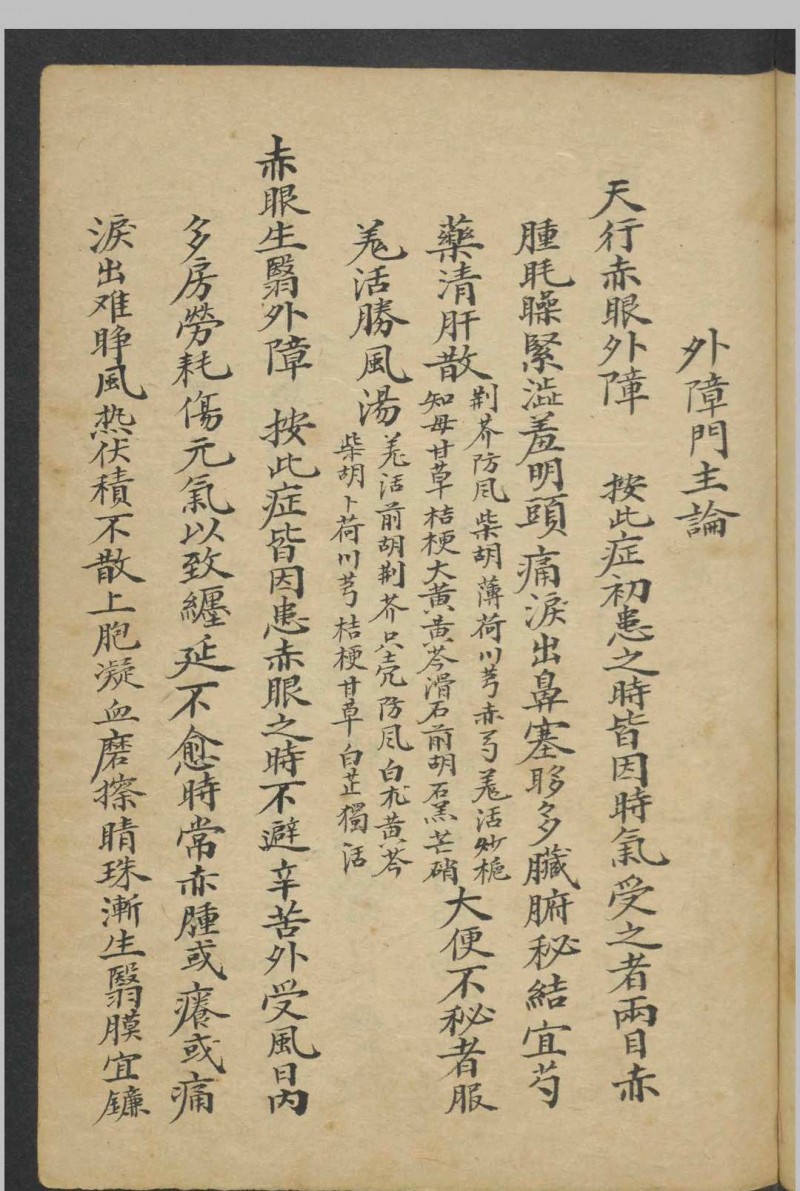 外障門主論
天行赤眼外障 按此症初患之時皆因時氣受之者兩目赤
腫眊矂緊澁羞明頭痛淚出鼻塞眵多臟腑秘結宜芍
藥清肝散 荆芥防風柴胡薄荷川芎赤芍羗活炒梔
知母甘草桔梗大黃黃芩滑石前胡石羔芒硝 大便不秘者服
羗活勝風湯 羗活前胡荆芥只壳防風白朮黃芩
柴胡卜荷川芎桔梗甘草白芷獨活
赤眼生翳外障 按此症皆因患赤眼之時不避辛苦外受風日內
多房勞耗傷元氣以致纏延不愈時常赤腫或癢或痛
淚出难睜風热伏積不散上胞凝血磨擦睛珠漸生翳膜宜鐮